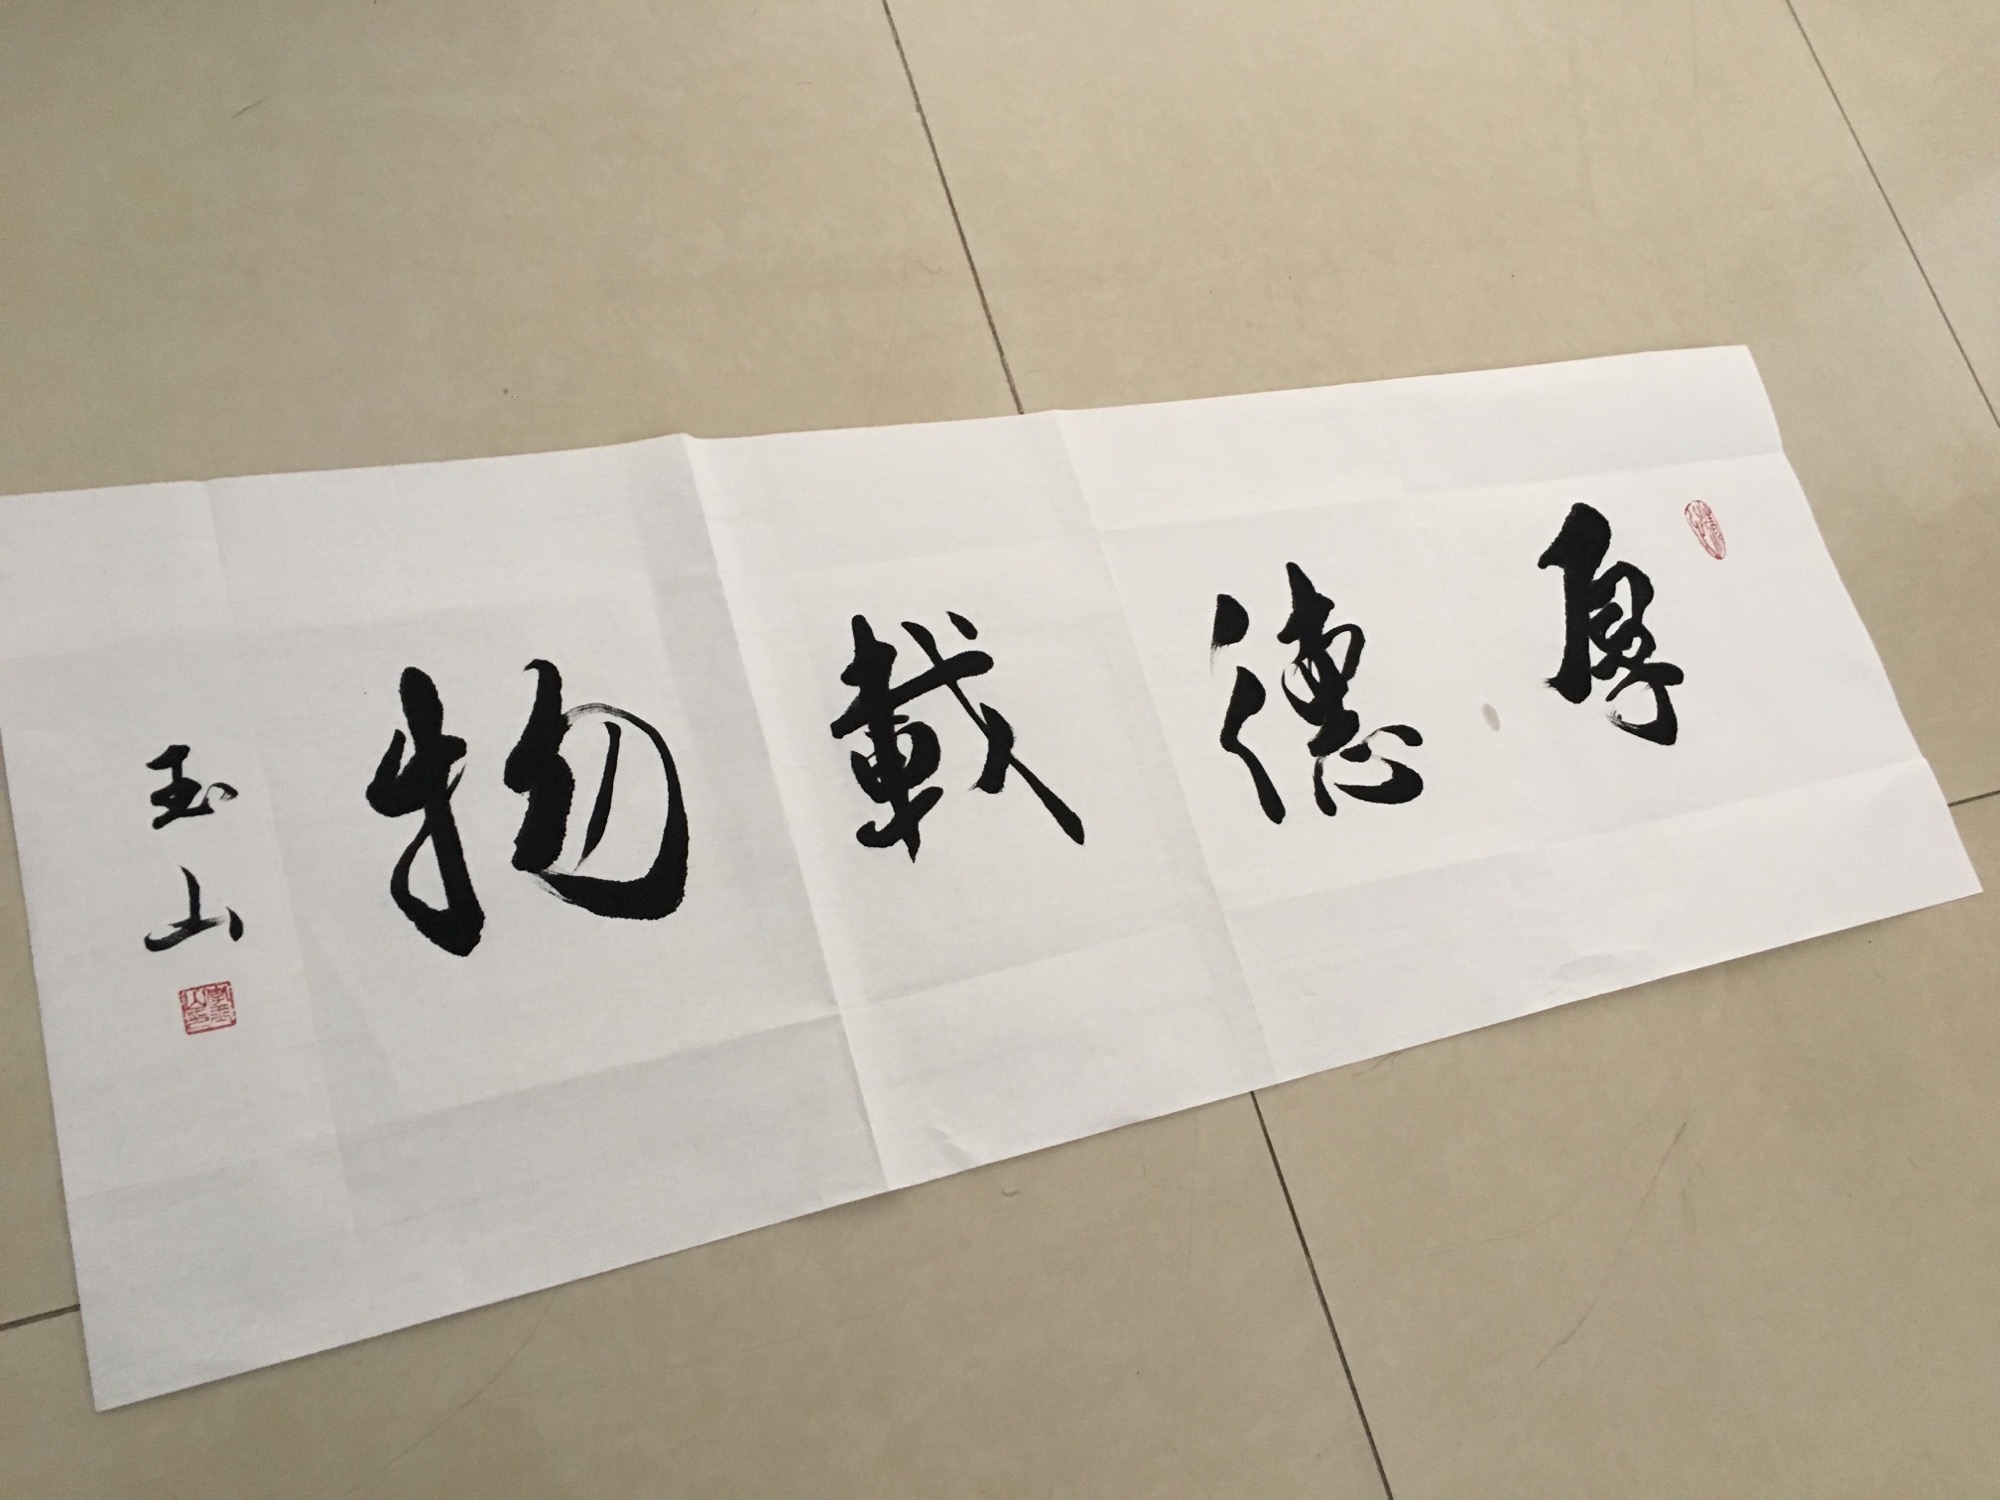 厚德載物
玉山